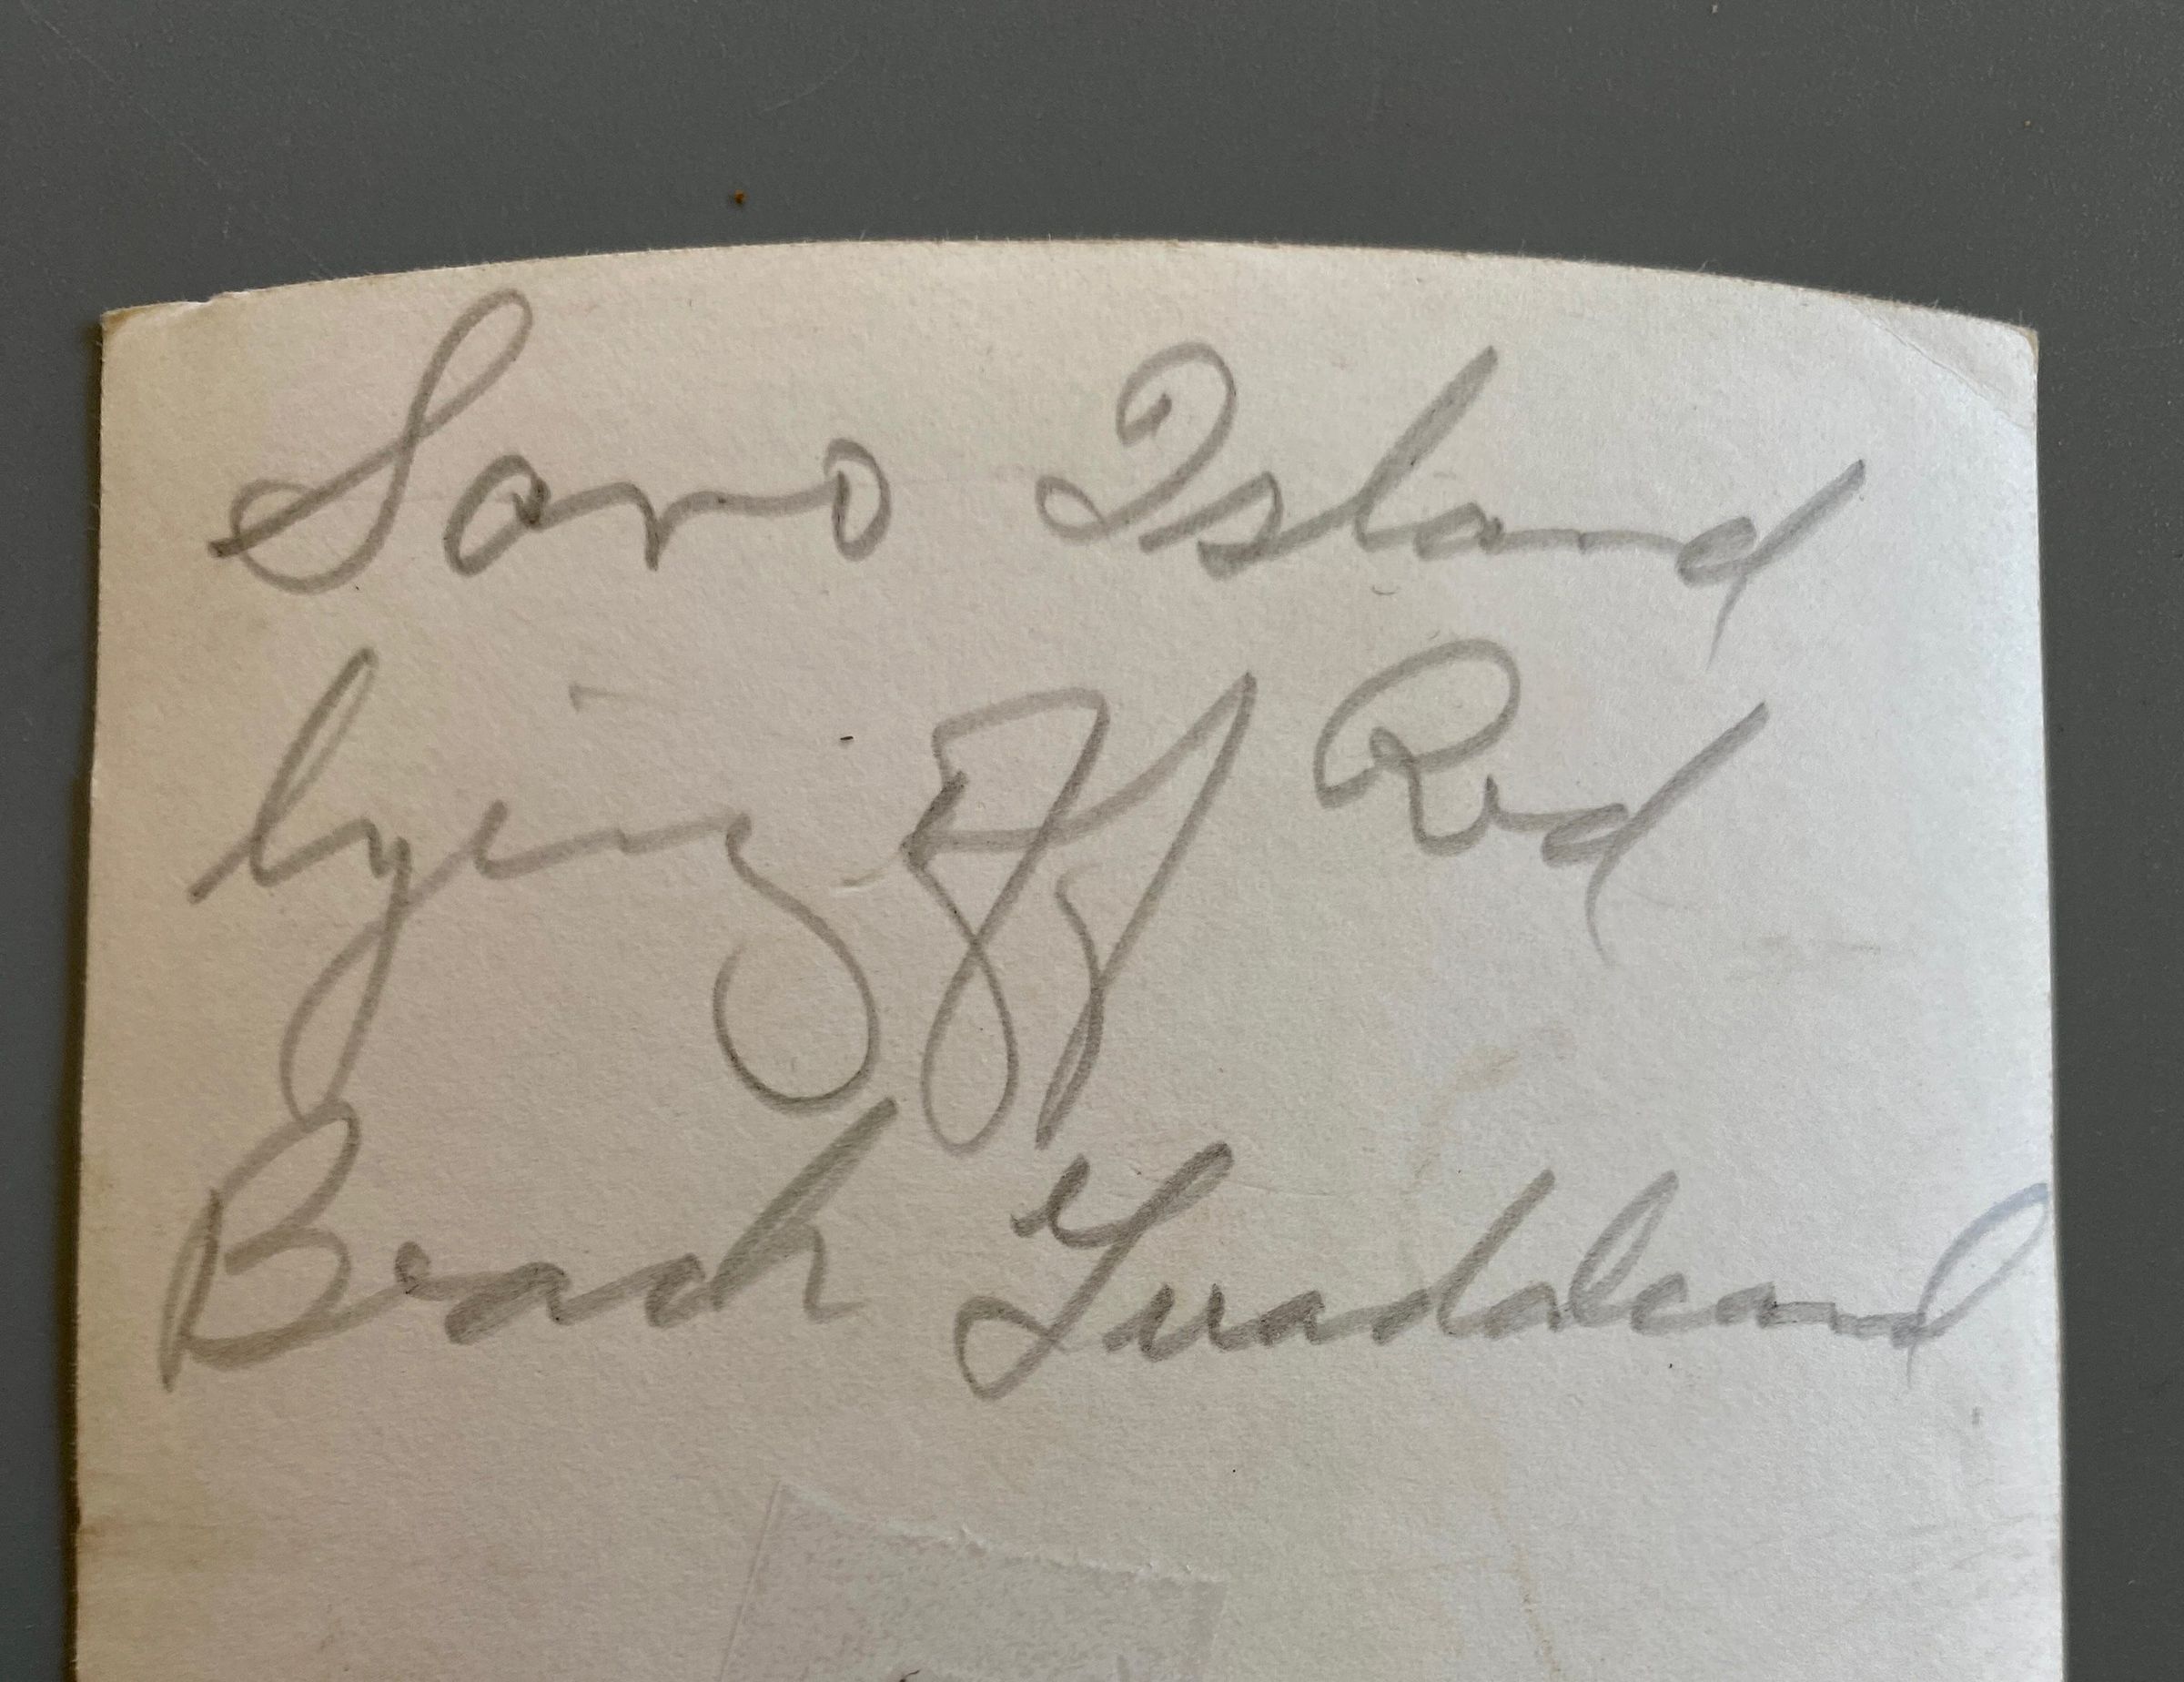 Savo Island
lying Off Red
Beach Guadalcanal